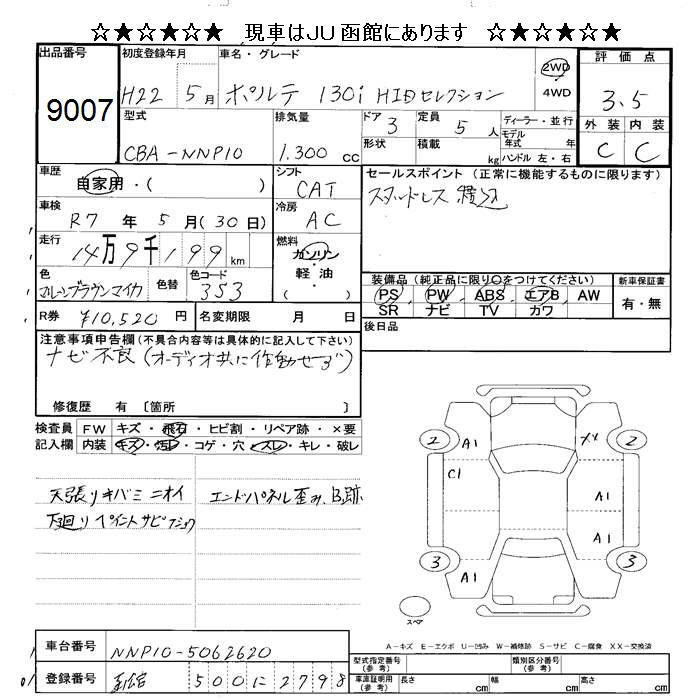 ☆★☆★☆☆ 現車はJU函館にあります ☆★☆★☆☆
出品番号 9007
初度登録年月 H22 5月
車名・グレード ポルテ 130i HIDセレクション
2WD
4WD
評価点 3.5
外装 内装
C C
型式 CBA-NNP10
排気量 1.300 cc
ドア 3
定員 5人
形状
積載 kg
ディーラー・並行
モデル年式 年
ハンドル 左・右
車歴 自家用・( )
シフト CAT
セールスポイント (正常に機能するものに限ります)
スタッドレス 積込
車検 R7年 5月(30日)
冷房 AC
走行 14万9千199km
燃料 ガソリン・軽油・( )
色 マルーンブラウンマイカ
色替
色コード 3S3
装備品 (純正品に限り○をつけてください)
PS PW ABS エアB AW
SR ナビ TV カワ
新車保証書
有・無
R券 ¥10,520円
名変期限 月 日
後日品
注意事項申告欄(不具合内容等は具体的に記入して下さい)
ナビ不良(オーディオ共に作動せず)
修復歴 有 〔箇所 〕
検査員記入欄
FW キズ・飛石・ヒビ割・リペア跡・×要
内装 キズ・汚レ・コゲ・穴・スレ・キレ・破レ
天張りキバミ ニオイ
下廻りペイントサビ
エンドパネル歪み、B跡
2 A1 2
C1 A1
A1
3 A1 3
スペア
A-キズ E-エクボ U-凹み W-補修跡 S-サビ C-腐食 XX-交換済
車台番号 NNP10-5062620
登録番号 函館 500に2798
型式指定番号(参考)
類別区分番号(参考)
車庫証明用(参考) 長さ cm 幅 cm 高さ cm